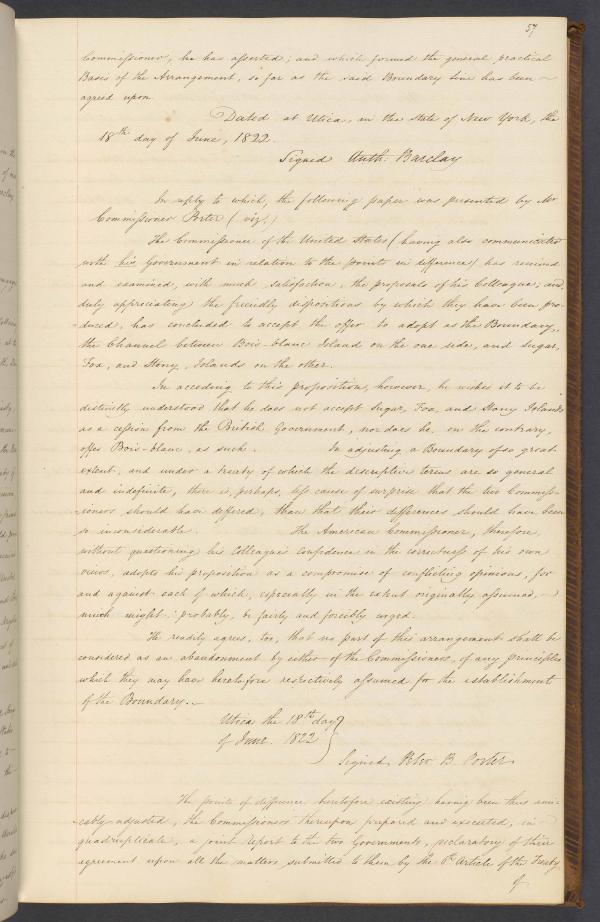 57
Commissioner, he has asserted; and which formed the general practical
Bases of the Arrangement, so far as the said Boundary line has been
agreed upon.
Dated at Utica, in the State of New York, the
18th day of June, 1822.
Signed Anth: Barclay
In reply to which, the following paper was presented by Mr
Commissioner Porter (viz:)
The Commissioner of the United States (having also communicated
with his Government in relation to the points in difference) has received
and examined, with much satisfaction, the proposals of his Colleague; and,
duly appreciating the friendly dispositions by which they have been pro-
duced, has concluded to accept the offer to adopt as the Boundary,
the Channel between Bois-blanc Island on the one side, and Sugar,
Fox, and Stony, Islands on the other.
In acceding to this proposition, however, he wishes it to be
distinctly understood that he does not accept Sugar, Fox, and Stony Islands
as a cession from the British Government, nor does he, on the contrary,
offer Bois-blanc, as such. In adjusting a Boundary of so great
extent, and under a treaty of which the descriptive terms are so general
and indefinite, there is, perhaps, less cause of surprise that the two Commiss-
ioners should have differed, than that their differences should have been
so inconsiderable. The American Commissioner, therefore,
without questioning his Colleague's confidence in the correctness of his own
views, adopts his proposition as a compromise of conflicting opinions, for
and against each of which, especially in the extent originally assumed,
much might probably, be fairly and forcibly urged.
He readily agrees, too, that no part of this arrangement shall be
considered as an abandonment by either of the Commissioners, of any principles
which they may have heretofore respectively assumed for the establishment
of the Boundary.
Utica the 18th day
of June 1822
Signed, Peter B. Porter
The points of difference heretofore existing having been thus ami-
cably adjusted, the Commissioners thereupon prepared and executed, in
quadruplicate, a joint Report to the two Governments, declaratory of their
agreement upon all the matters submitted to them by the 6th Article of the Treaty
of